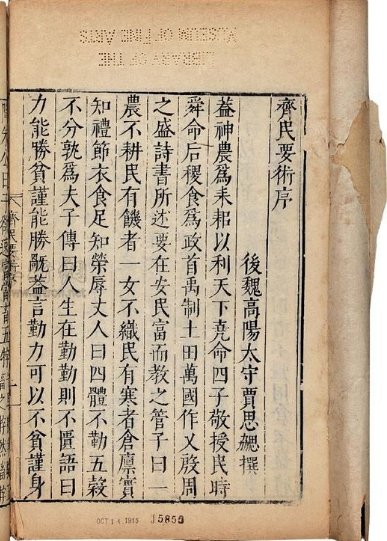 LIBRARY OF THE
MUSEUM OF FINE ARTS
齊民要術序
後魏高陽太守賈思勰撰
蓋神農爲耒耜以利天下堯命四子敬授民時
舜命后稷食爲政首禹制土田萬國作乂殷周
之盛詩書所述要在安民富而教之管子曰一
農不耕民有饑者一女不織民有寒者倉廩實
知禮節衣食足知榮辱丈人曰四體不勤五穀
不分孰爲夫子傳曰人生在勤勤則不匱語曰
力能勝貧謹能勝禍蓋言勤力可以不貧謹身
OCT 14 1915